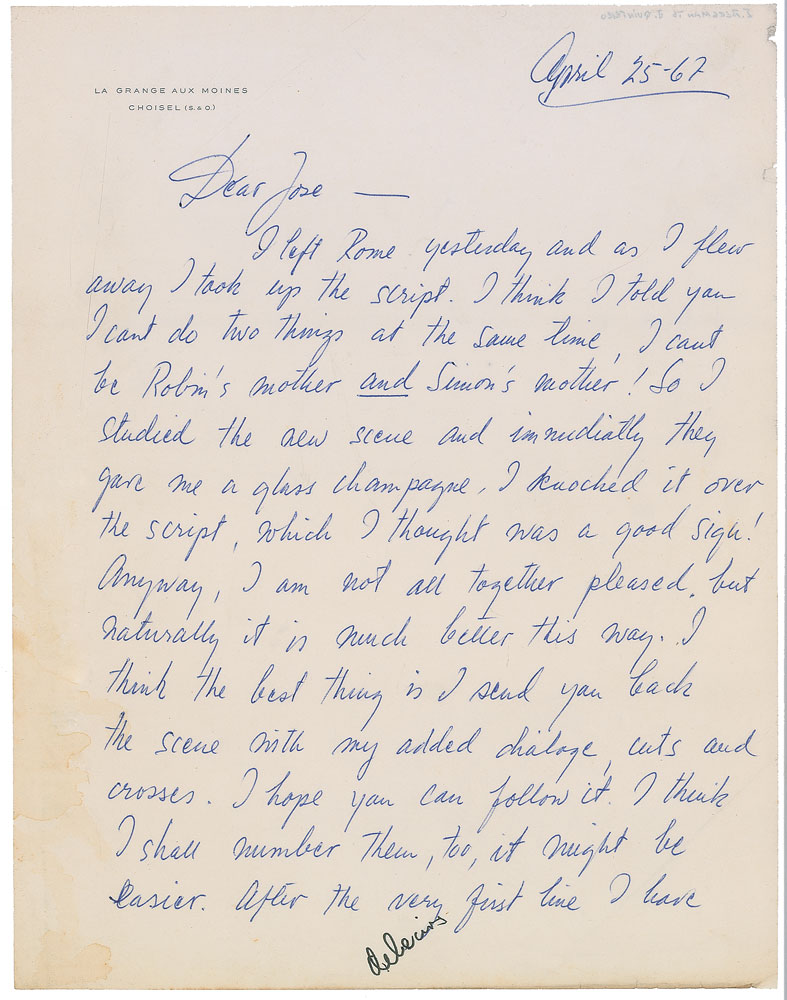 April 25-67
LA GRANGE AUX MOINES
CHOISEL (S. & O.)
Dear Jose —
I left Rome yesterday and as I flew
away I took up the script. I think I told you
I cant do two things at the same time, I cant
be Robin's mother and Simon's mother! So I
studied the new scene and immediatly they
gave me a glass champagne, I knocked it over
the script, which I thought was a good sign!
Anyway, I am not all together pleased, but
naturally it is much better this way. I
think the best thing is I send you back
the scene with my added dialoge, cuts and
crosses. I hope you can follow it. I think
I shall number them, too, it might be
easier. After the very first line I have